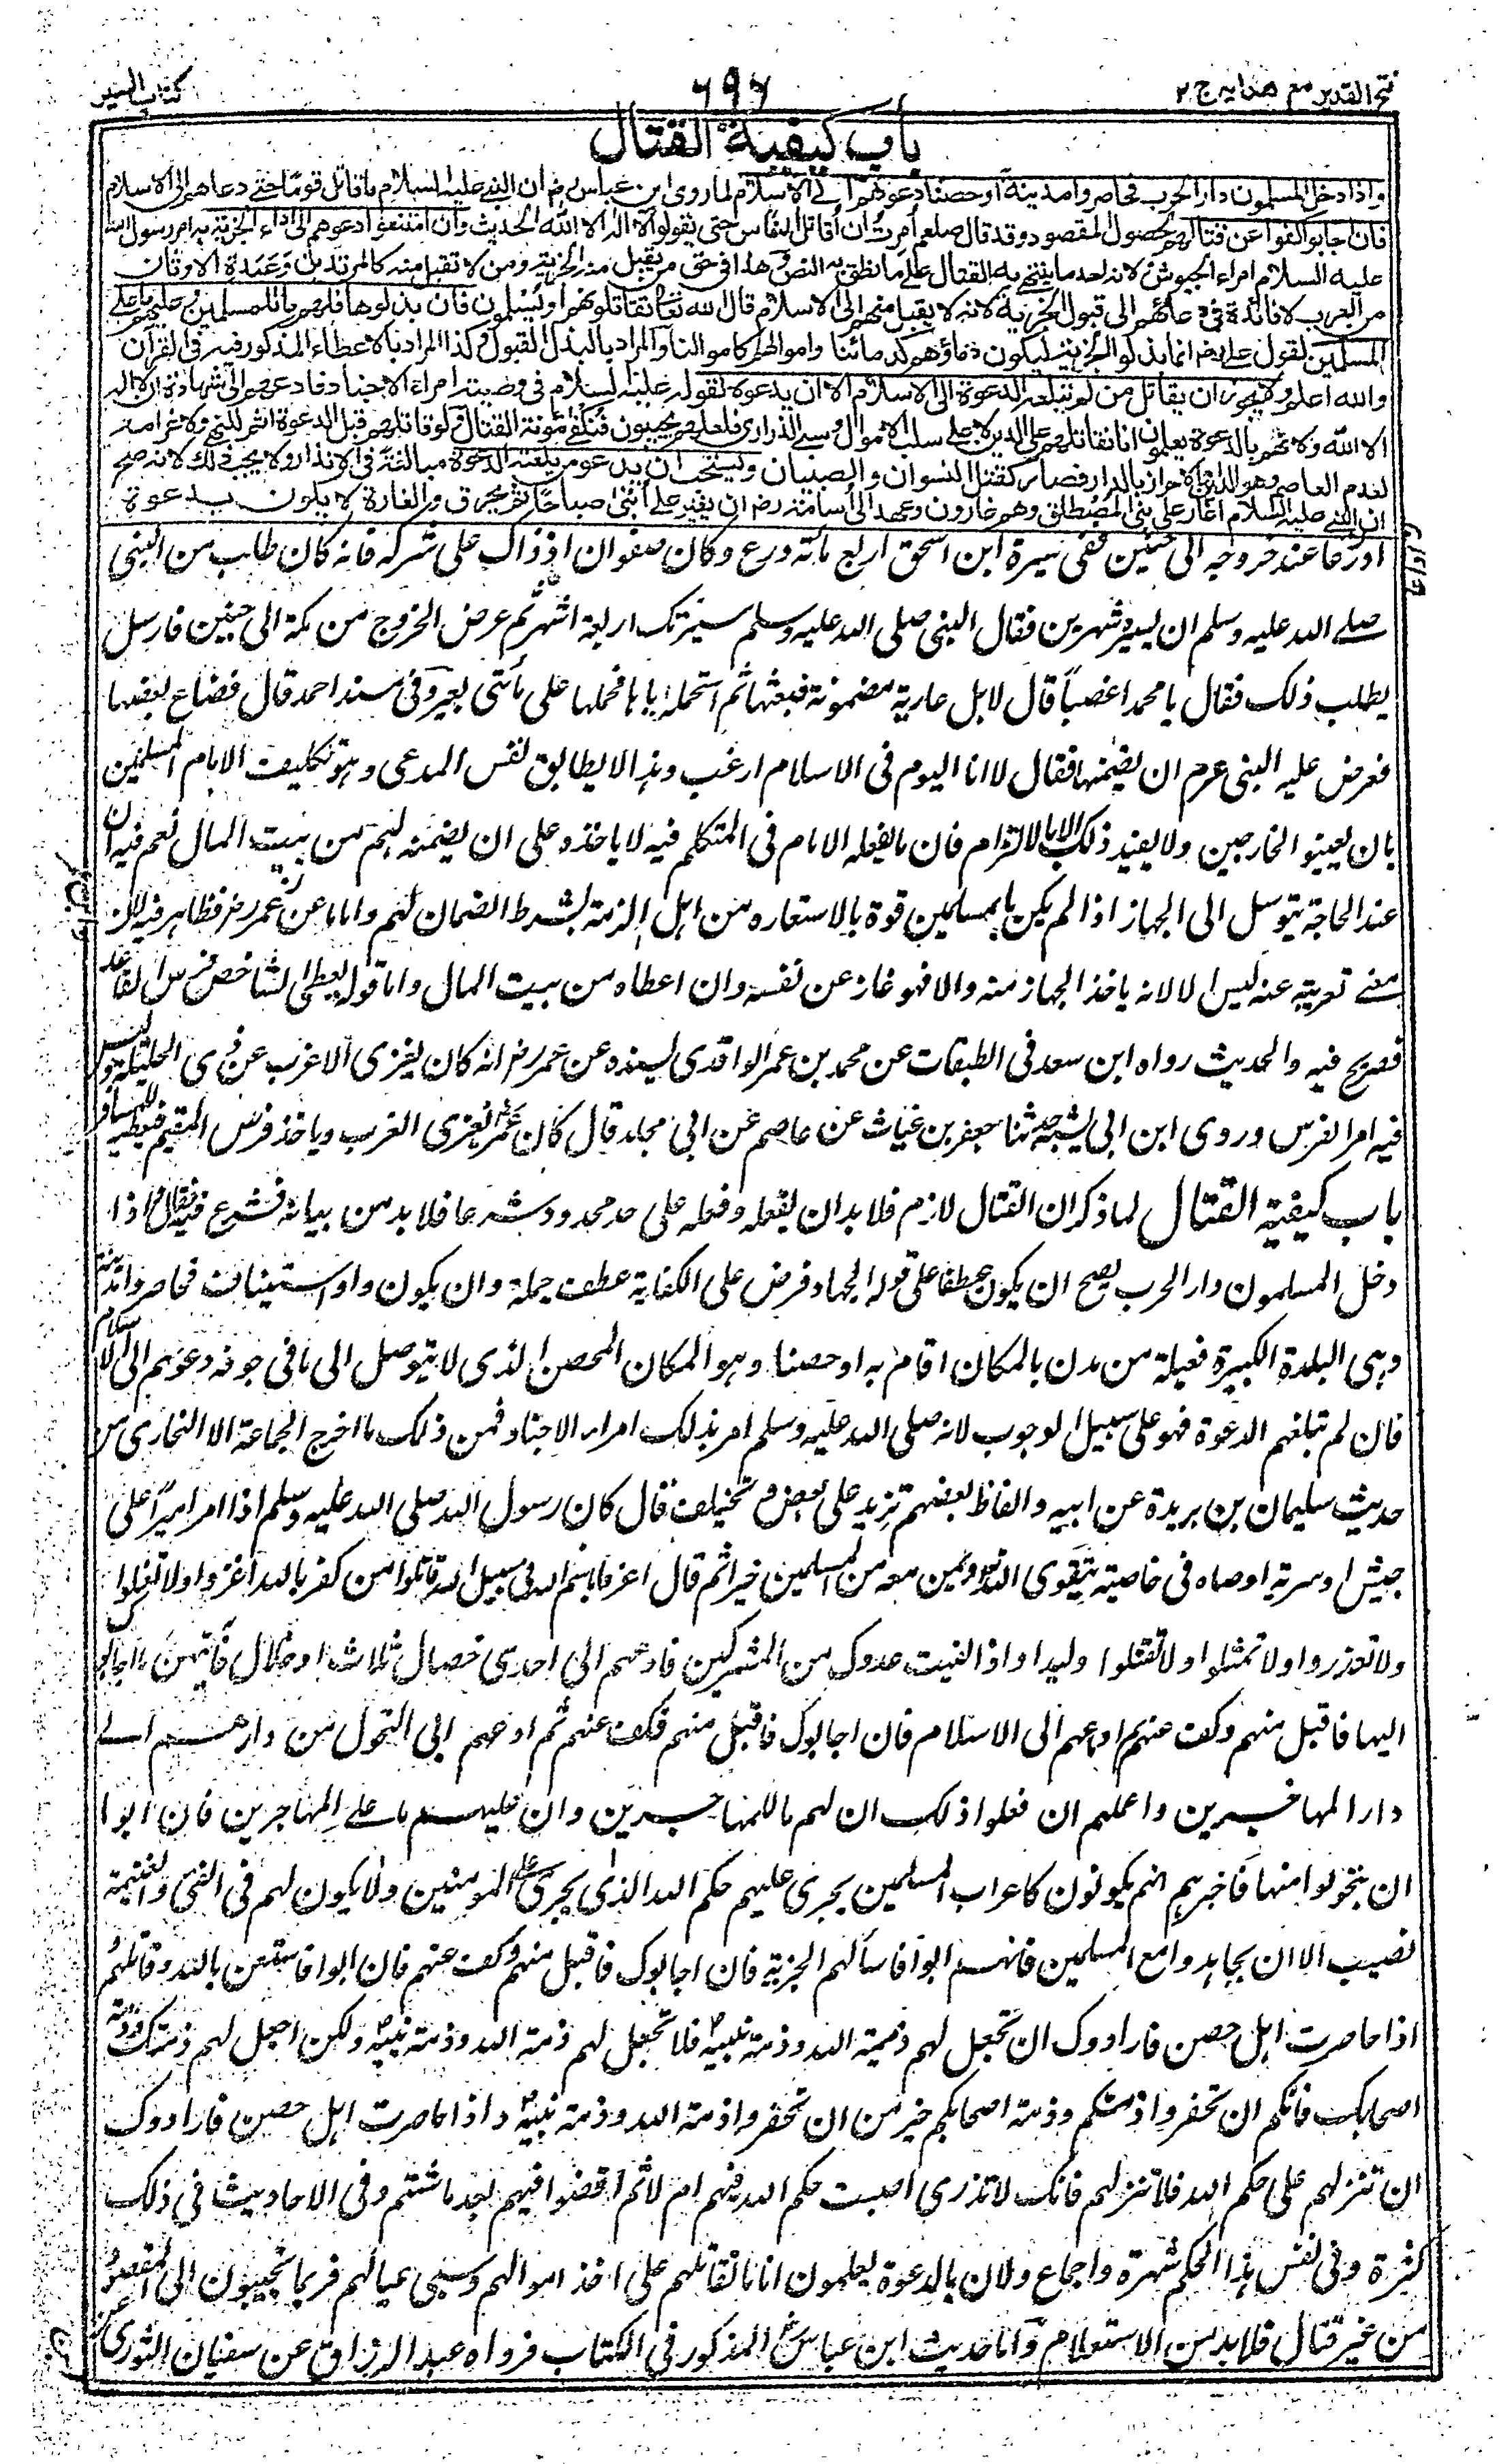 فتح القدير مع هدايه ج ٢
٦٩٦
كتاب السير
باب كيفية القتال
واذا دخل المسلمون دار الحرب فحاصروا مدينة او حصنا دعوهم الى الاسلام لما روى ابن عباس رض ان النبى عليه السلام ما قاتل قوما حتى دعاهم الى الاسلام
فان اجابوا كفوا عن قتالهم لحصول المقصود وقد قال صلعم امرت ان اقاتل الناس حتى يقولوا لا اله الا الله الحديث وان امتنعوا دعوهم الى اداء الجزية به امر رسول الله
عليه السلام امراء الجيوش ولانه احد ما ينتهى به القتال على ما نطق به النص وهذا فى حق من يقبل منه الجزية ومن لا تقبل منه كالمرتدين وعبدة الاوثان
من العرب لا فائدة فى دعائهم الى قبول الجزية لانه لا يقبل منهم الا الاسلام قال الله تعالى تقاتلونهم او يسلمون فان بذلوها فلهم ما للمسلمين وعليهم ما على
المسلمين لقول على رض انما بذلوا الجزية ليكون دماؤهم كدمائنا واموالهم كاموالنا والمراد بالبذل القبول وكذا المراد بالاعطاء المذكور فيه فى القرآن
والله اعلم ولا يجوز ان يقاتل من لم تبلغه الدعوة الى الاسلام الا ان يدعوه لقوله عليه السلام فى وصية امراء الاجناد فادعهم الى شهادة ان لا اله
الا الله ولانهم بالدعوة يعلمون انا نقاتلهم على الدين لا على سلب الاموال وسبى الذرارى فلعلهم يجيبون فنكفى مؤنة القتال ولو قاتلهم قبل الدعوة اثم للنهى ولا غرامة
لعدم العاصم وهو الدين او الاحراز بالدار فصار كقتل النسوان والصبيان ويستحب ان يدعو من بلغته الدعوة مبالغة فى الانذار ولا يجب ذلك لانه صح
ان النبى عليه السلام اغار على بنى المصطلق وهم غارون وعهد الى اسامة رض ان يغير على ابنى صباحا ثم يحرق والغارة لا يكون بدعوة
ادرعا عند خروجه الى حنين ففى سيرة ابن اسحق اربع مائة درع وكان صفوان اذ ذاك على شركه فانه كان طالب من النبى
صلى الله عليه وسلم ان يسيره شهرين فقال النبى صلى الله عليه وسلم سيرتك اربعة اشهر ثم عرض الخروج من مكة الى حنين فارسل
يطلب ذلك فقال يا محمد اغصباً قال لا بل عارية مضمونة فبعثها ثم استحمله اياها فحملها على مأتى بعير وفى مسند احمد قال فضاع بعضها
فعرض عليه النبى عرم ان يضمنها فقال لا انا اليوم فى الاسلام ارغب وهذا لا يطابق نفس المدعى وهو تكليف الامام المسلمين
بان يعينوا الخارجين ولا يفيد ذلك الا بالالتزام فان ما يفعله الامام فى المتكلم فيه لا ياخذه على ان يضمنه لهم من بيت المال نعم فيه ان
عند الحاجة يتوسل الى الجهاز اذا لم يكن بالمسلمين قوة بالاستعارة من اهل الذمة بشرط الضمان لهم واما ما عن عمر رض فظاهر فيه لان
معنى تعريته عنه ليس الا لانه ياخذ الجهاز منه والا فهو غاز عن نفسه وان اعطاه من بيت المال واما قوله يعطى الشاخص فرس القاعد
فصريح فيه والحديث رواه ابن سعد فى الطبقات عن محمد بن عمر الواقدى بسنده عن عمر رض انه كان يغزى الاعزب عن ذى الحليلة وليس
فيه امر الفرس وروى ابن ابى شيبة حدثنا حفص بن غياث عن عاصم عن ابى مجلد قال كان عمر يغزى العزب وياخذ فرس المقيم فيعطيه للمسافر
باب كيفية القتال لما ذكر ان القتال لازم فلا بد ان يفعله وفعله على حد محدود شرعا فلا بد من بيانه فشرع فيه فقال اذا
دخل المسلمون دار الحرب يصح ان يكون عطفا على قوله الجهاد فرض على الكفاية عطف جملة وان يكون واو استيناف فحاصروا مدينة
وهى البلدة الكبيرة فعيلة من مدن بالمكان اقام به او حصنا وهو المكان المحصن الذى لا يتوصل الى ما فى جوفه دعوهم الى الاسلام
فان لم تبلغهم الدعوة فهو على سبيل الوجوب لانه صلى الله عليه وسلم امر بذلك امراء الاجناد فمن ذلك ما اخرج الجماعة الا البخارى من
حديث سليمان بن بريدة عن ابيه والفاظ بعضهم تزيد على بعض وتختلف قال كان رسول الله صلى الله عليه وسلم اذا امر اميرا على
جيش او سرية اوصاه فى خاصته بتقوى الله ومن معه من المسلمين خيرا ثم قال اغزوا باسم الله فى سبيل الله قاتلوا من كفر بالله اغزوا ولا تغلوا
ولا تغدروا ولا تمثلوا ولا تقتلوا وليدا واذا لقيت عدوك من المشركين فادعهم الى احدى خصال ثلاث او خلال فايتهن ما اجابوك
اليها فاقبل منهم وكف عنهم ادعهم الى الاسلام فان اجابوك فاقبل منهم وكف عنهم ثم ادعهم الى التحول من دارهم الى
دار المهاجرين واعلمهم ان فعلوا ذلك ان لهم ما للمهاجرين وان عليهم ما على المهاجرين فان ابوا
ان يتحولوا منها فاخبرهم انهم يكونون كاعراب المسلمين يجرى عليهم حكم الله الذى يجرى على المومنين ولا يكون لهم فى الفىء والغنيمة
نصيب الا ان يجاهدوا مع المسلمين فان هم ابوا فاسألهم الجزية فان اجابوك فاقبل منهم وكف عنهم فان ابوا فاستعن بالله وقاتلهم و
اذا حاصرت اهل حصن فارادوك ان تجعل لهم ذمة الله وذمة نبيه فلا تجعل لهم ذمة الله وذمة نبيه ولكن اجعل لهم ذمتك وذمة
اصحابك فانكم ان تخفروا ذمتكم وذمة اصحابكم خير من ان تخفروا ذمة الله وذمة نبيه واذا حاصرت اهل حصن فارادوك
ان تنزلهم على حكم الله فلا تنزلهم فانك لا تدرى اصبت حكم الله فيهم ام لا ثم اقضوا فيهم بعد ما شئتم وفى الاحاديث فى ذلك
كثرة وفى نفس هذا الحكم شهرة واجماع ولان بالدعوة يعلمون انا ما نقاتلهم على اخذ اموالهم وسبى عيالهم فربما يجيبون الى المقصود
من غير قتال فلا بد من الاستعلام واما حديث ابن عباس رض المذكور فى الكتاب فرواه عبد الرزاق عن سفيان الثورى عن